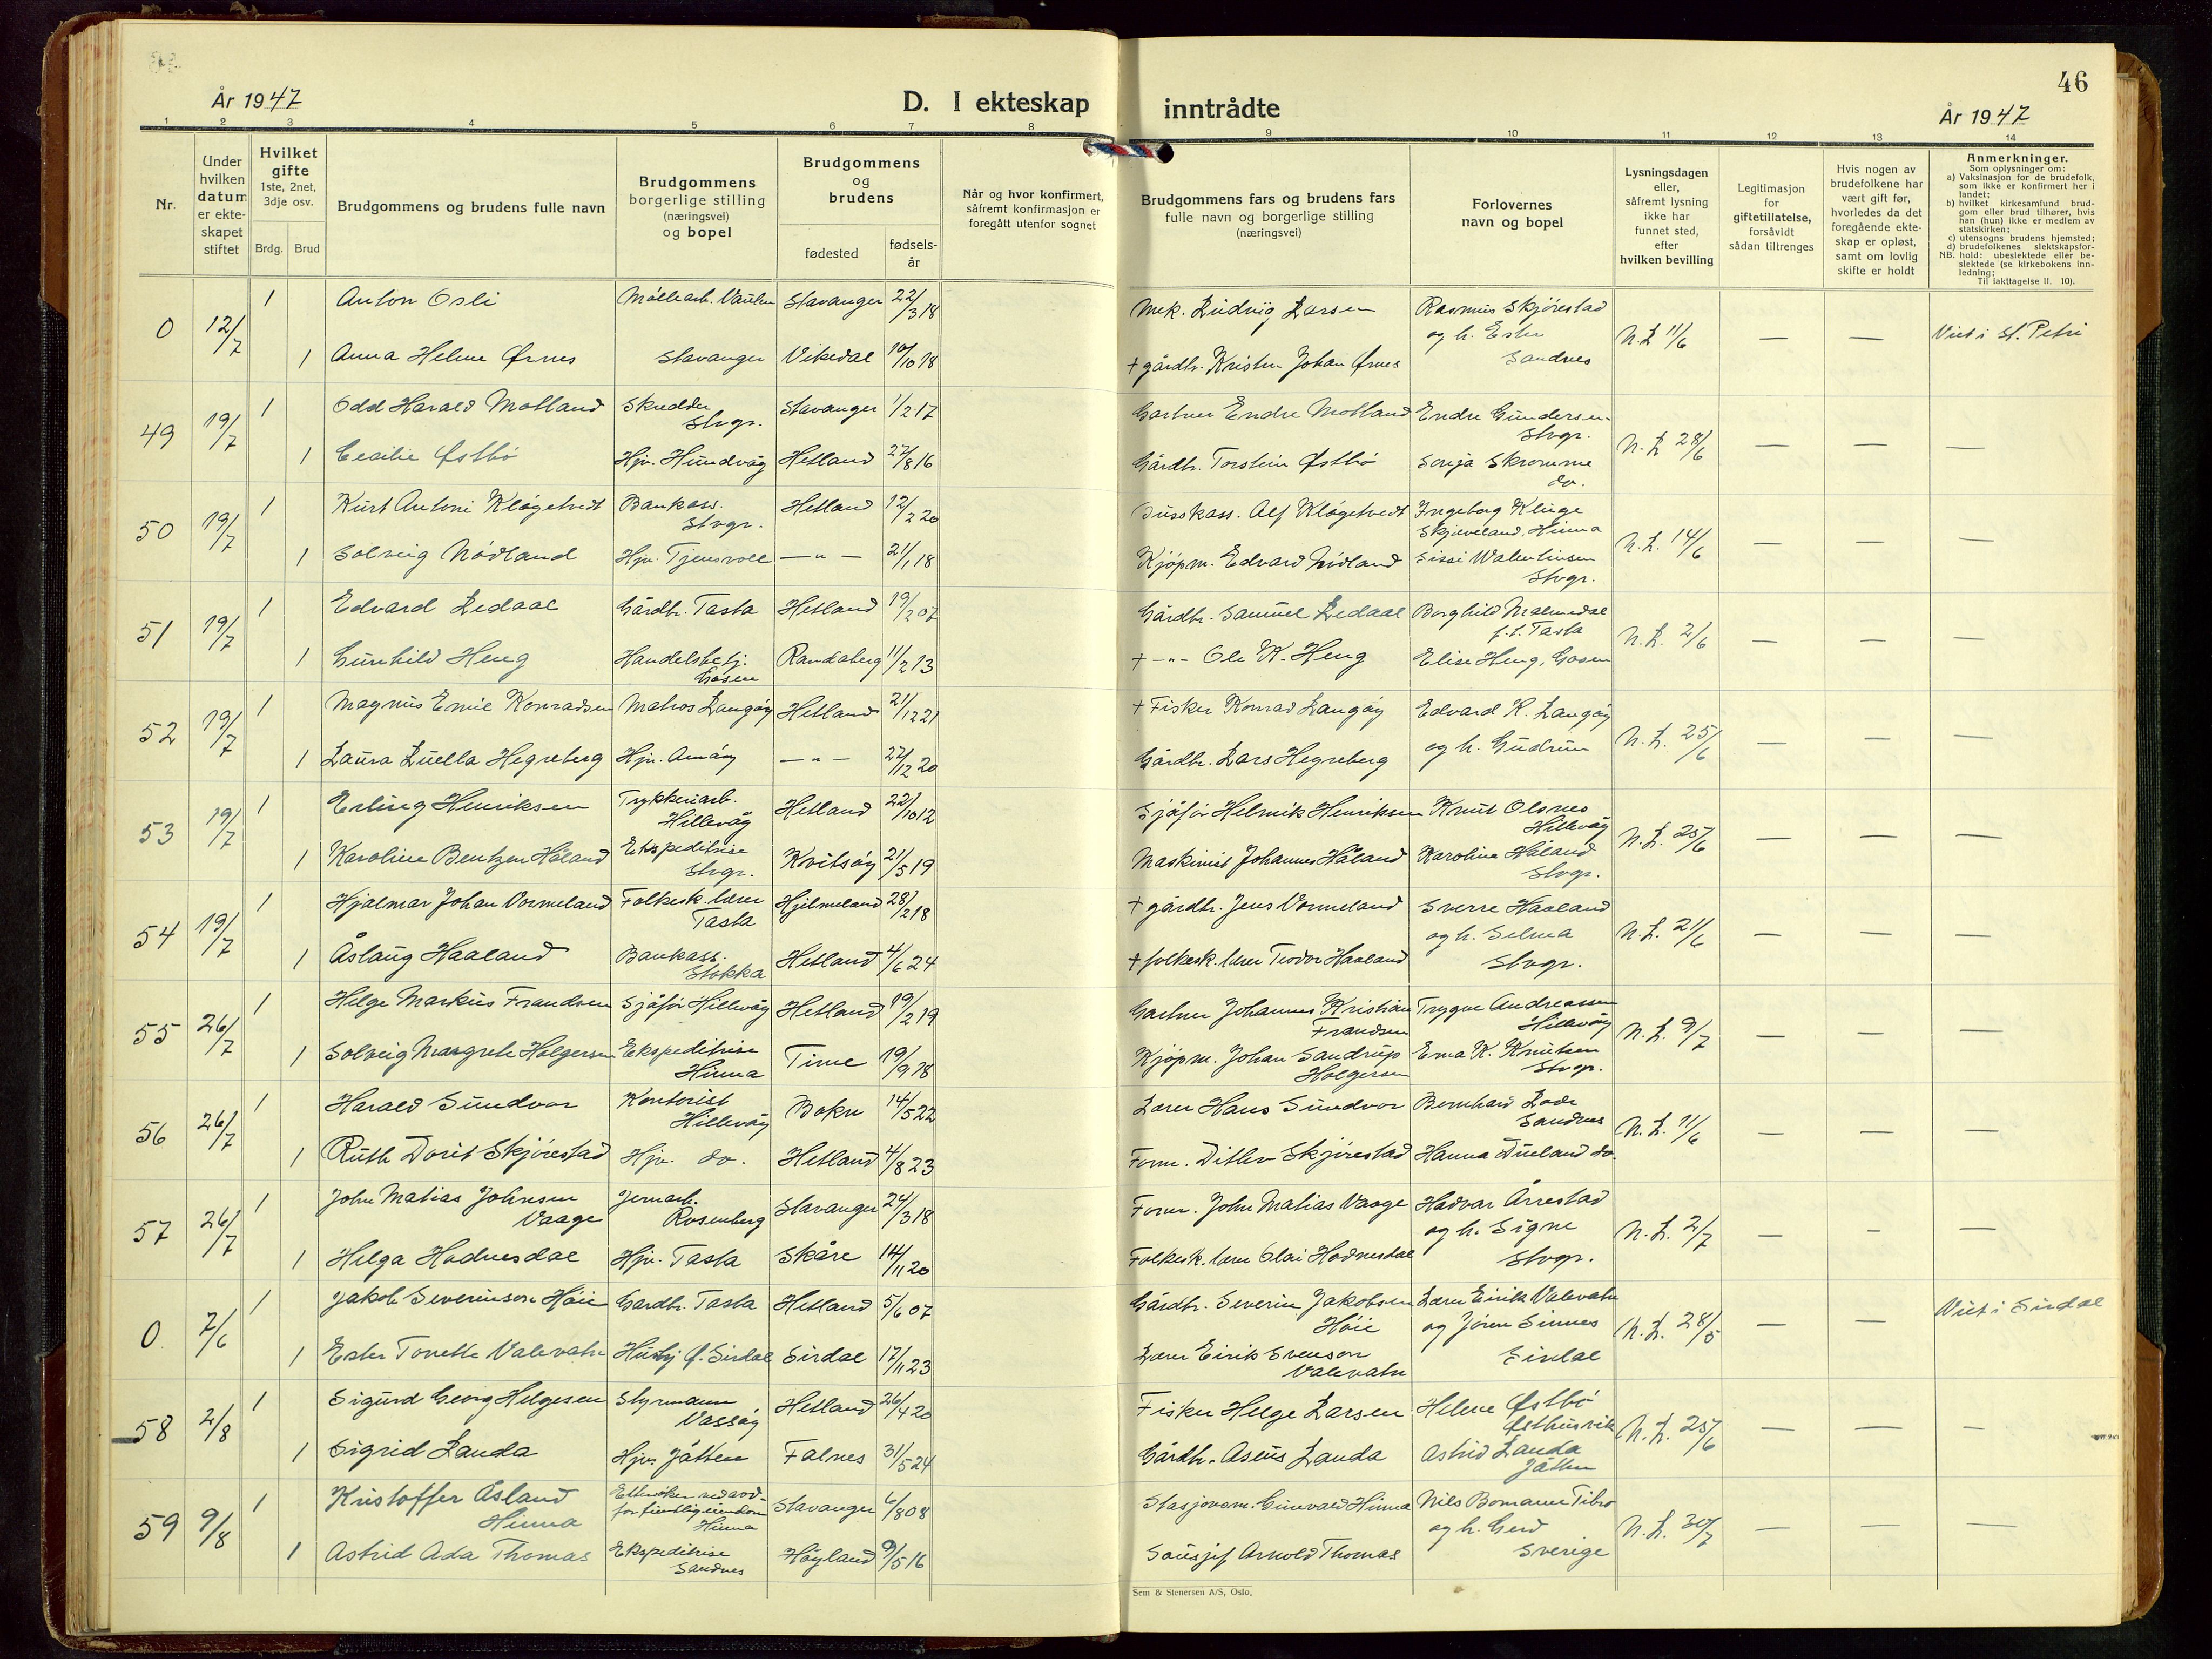 46
År 1947
D. I ekteskap inntrådte
År 1947
1 2 3 4 5 6 7 8 9 10 11 12 13 14
Nr.
Under hvilken datum er ekteskapet stiftet
Hvilket gifte 1ste, 2net, 3dje osv.
Brdg. Brud
Brudgommens og brudens fulle navn
Brudgommens borgerlige stilling (næringsvei) og bopel
Brudgommens og brudens
fødested
fødselsår
Når og hvor konfirmert, såfremt konfirmasjon er foregått utenfor sognet
Brudgommens fars og brudens fars fulle navn og borgerlige stilling (næringsvei)
Forlovernes navn og bopel
Lysningsdagen eller, såfremt lysning ikke har funnet sted, efter hvilken bevilling
Legitimasjon for giftetillatelse, forsåvidt sådan tiltrenges
Hvis nogen av brudefolkene har vært gift før, hvorledes da det foregående ekteskap er opløst, samt om lovlig skifte er holdt
Anmerkninger.
Som oplysninger om:
a) Vaksinasjon for de brudefolk, som ikke er konfirmert her i landet;
b) hvilket kirkesamfund brudgom eller brud tilhører, hvis han (hun) ikke er medlem av statskirken;
c) utensogns brudens hjemsted;
d) brudefolkenes slektskapsforhold: ubeslektede eller beslektede (se kirkebokens innledning;
NB.
Til iakttagelse II. 10).
0 12/7 1 Anton Osli Møllearb. Vaulen Stavanger 22/3 18 Mek. Ludvig Larsen Rasmus Skjørestad og h. Ester Sandnes N.L. 11/6 — — Viet i St. Petri
1 Anna Helene Ørnes Stavanger Vikedal 10/10 18 + gårdbr. Kristen Johan Ørnes
49 19/7 1 Odd Harald Motland Skredder Stvgr. Stavanger 1/2 17 Gartner Endre Motland Endre Gundersen Stvgr. N.L. 28/6 — — —
1 Cecilie Østbö Hjv. Hundvåg Hetland 27/8 16 Gårdbr. Torstein Østbö Sonja Skromme do.
50 19/7 1 Kurt Antoni Kløgetvedt Bankass. Stvgr. Hetland 12/2 20 Alf Kløgetvedt Ingeborg Kluge Skjæveland, Hinna N.L. 14/6 — — —
1 Solveig Nödland Hjv. Tjensvoll — " — 21/1 18 Kjöpm. Edvard Nödland Sissi Walentinsen Stvgr.
51 19/7 1 Edvard Ledaal Gårdbr. Tasta Hetland 19/2 07 Gårdbr. Samuel Ledaal Borghild Malmedal Tasta N.L. 2/6 — — —
1 Gunhild Heng Handelsbetj. Gosen Randaberg 11/2 13 + — " — Ole K. Heng Elise Heng, Gosen
52 19/7 1 Magnus Emil Konradsen Matros Langöy Hetland 21/12 21 + Fisker Konrad Langöy Edvard K. Langöy og h. Gudrun N.L. 25/6 — — —
1 Laura Luella Hegreberg Hjv. Amöy — " — 27/12 20 Gårdbr. Lars Hegreberg
53 19/7 1 Erling Henriksen Trykkeriarb. Hillevåg Hetland 22/10 12 Sjåför Helmik Henriksen Knut Olsnes Hillevåg N.L. 25/6 — — —
1 Karoline Bentzen Håland Ekspeditrise Stvgr. Kvitsöy 21/5 19 Maskinist Johannes Håland Karoline Håland Stvgr.
54 19/7 1 Hjalmar Johan Vormeland Folkesk. lærer Tasta Hjelmeland 28/2 18 + gårdbr. Jens Vormeland Sverre Haaland og h. Selma Stvgr. N.L. 21/6 — — —
1 Åslaug Haaland Bankass. Stokka Hetland 4/6 24 + folkesk. lærer Teodor Haaland
55 26/7 1 Helge Markus Frandsen Sjåför Hillevåg Hetland 19/2 19 Gartner Johannes Kristian Frandsen Trygve Andreassen Hillevåg N.L. 9/7 — — —
1 Solveig Margrete Holgersen Ekspeditrise Hinna Time 19/9 18 Kjöpm. Johan Sandrup Holgersen Erna K. Knutsen Stvgr.
56 26/7 1 Harald Sundvor Kontorist Hillevåg Bokn 14/5 22 Lærer Hans Sundvor Bernhard Lode Sandnes N.L. 11/6 — — —
1 Ruth Dorit Skjörestad Hjv. do. Hetland 4/8 23 Form. Ditlev Skjörestad Hanna Dueland do.
57 26/7 1 John Matias Johnsen Vaage Jernarb. Rosenberg Stavanger 24/3 18 Form. John Matias Vaage Hadvar Årrestad og h. Signe Stvgr. N.L. 2/7 — — —
1 Helga Hodnesdal Hjv. Tasta Skåre 14/11 20 Folkesk. lærer Olai Hodnesdal
0 7/6 1 Jakob Severinsen Höie Gardbr. Tasta Hetland 5/6 07 Gårdbr. Severin Jakobsen Höie Lærer Eirik Valevatn og Jören Sinnes Sirdal N.L. 28/5 — — Viet i Sirdal
1 Ester Tonette Valevatn Sirdal Sirdal 17/11 23 Lærer Eirik Svenson Valevatn
58 2/8 1 Sigurd Georg Helgesen Styrmann Vassöy Hetland 26/4 20 Fisker Helge Larsen Helene Östbö Östhusvik N.L. 25/6 — — —
1 Sigrid Landa Hjv. Jåtten Falnes 31/5 24 Gårdbr. Aseus Landa Astrid Landa Jåtten
59 9/8 1 Kristoffer Åsland Hinna Hinna Stavanger 6/8 08 Stasjonsm. Gunvald Hinna Nils Bomann Tibro og h. Gerd Sverige N.L. 30/7 — — —
1 Astrid Ada Thomas Ekspeditrise Sandnes Höyland 9/5 16 Arnold Thomas
Sem & Stenersen A/S, Oslo.